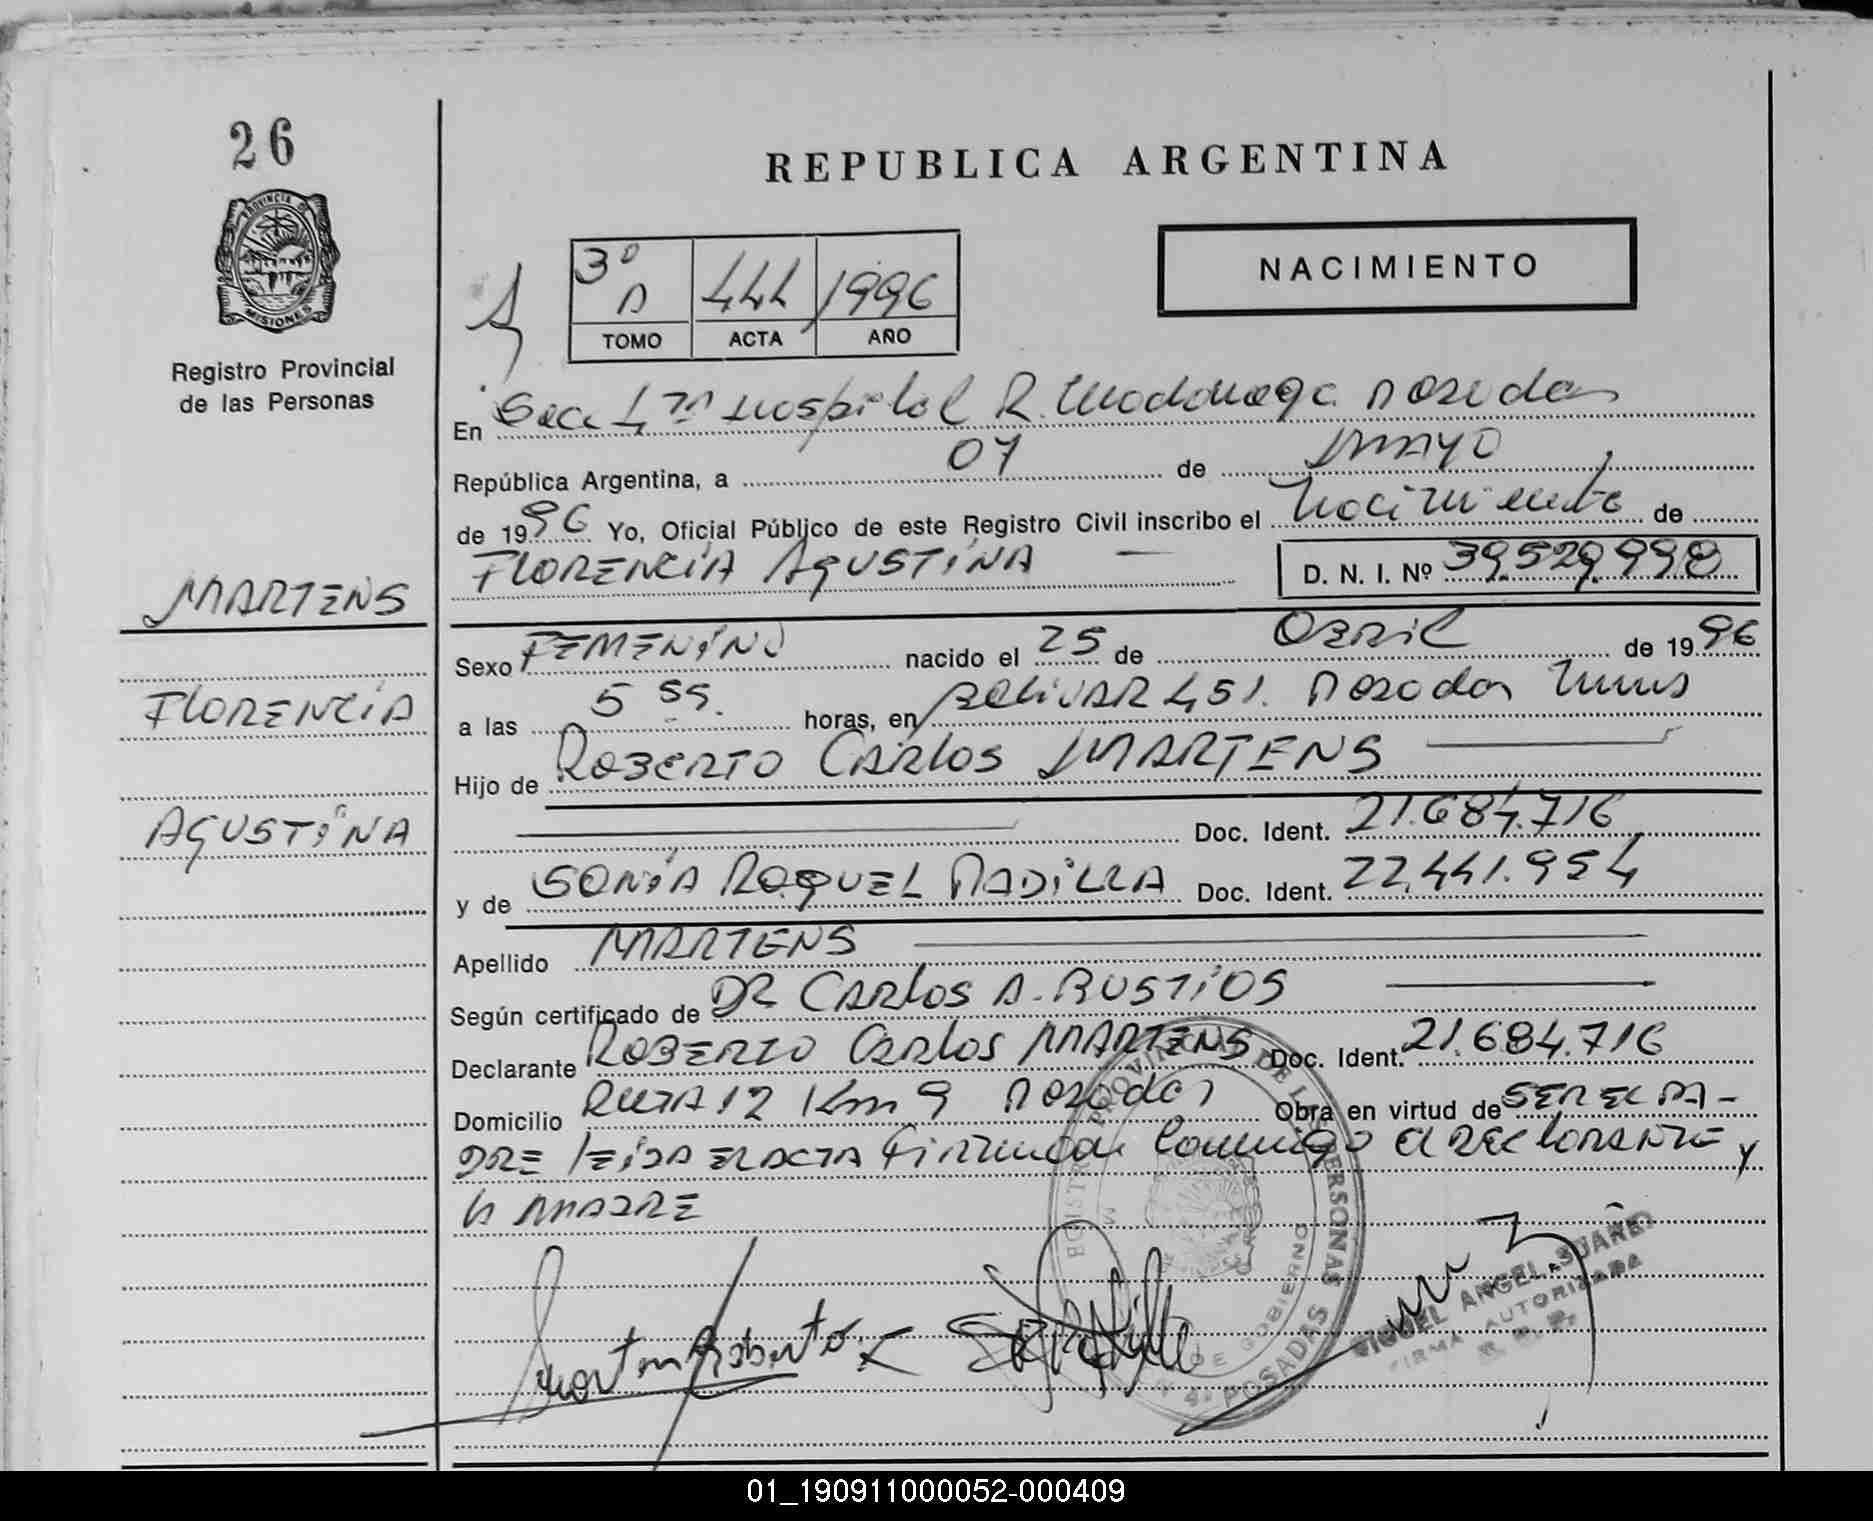 26
PROVINCIA DE
MISIONES
Registro Provincial
de las Personas
REPUBLICA ARGENTINA
NACIMIENTO
3º 444 1996
TOMO ACTA AÑO
En Secc 4ta Hospital R. Madariaga Posadas
República Argentina, a 07 de MAYO
de 1996 Yo, Oficial Público de este Registro Civil inscribo el Nacimiento de
FLORENCIA AGUSTINA D. N. I. Nº 39.529.998
MARTENS
FLORENCIA
AGUSTINA
Sexo FEMENINO nacido el 25 de ABRIL de 1996
a las 5 55. horas, en BOLIVAR 451. Posadas
Hijo de ROBERTO CARLOS MARTENS
Doc. Ident. 21.684.716
y de SONIA RAQUEL PADILLA Doc. Ident. 22.441.954
Apellido MARTENS
Según certificado de DR CARLOS A. BUSTIOS
Declarante ROBERTO CARLOS MARTENS Doc. Ident. 21.684.716
Domicilio RUTA 12 Km 9 Posadas Obra en virtud de SER EL PA-
DRE LEIDA EL ACTA Firman Conmigo el DECLARANTE y
LA MADRE
Roberto
MIGUEL ANGEL SUAREZ
FIRMA AUTORIZADA
DE GOBIERNO
POSADAS
01_190911000052-000409